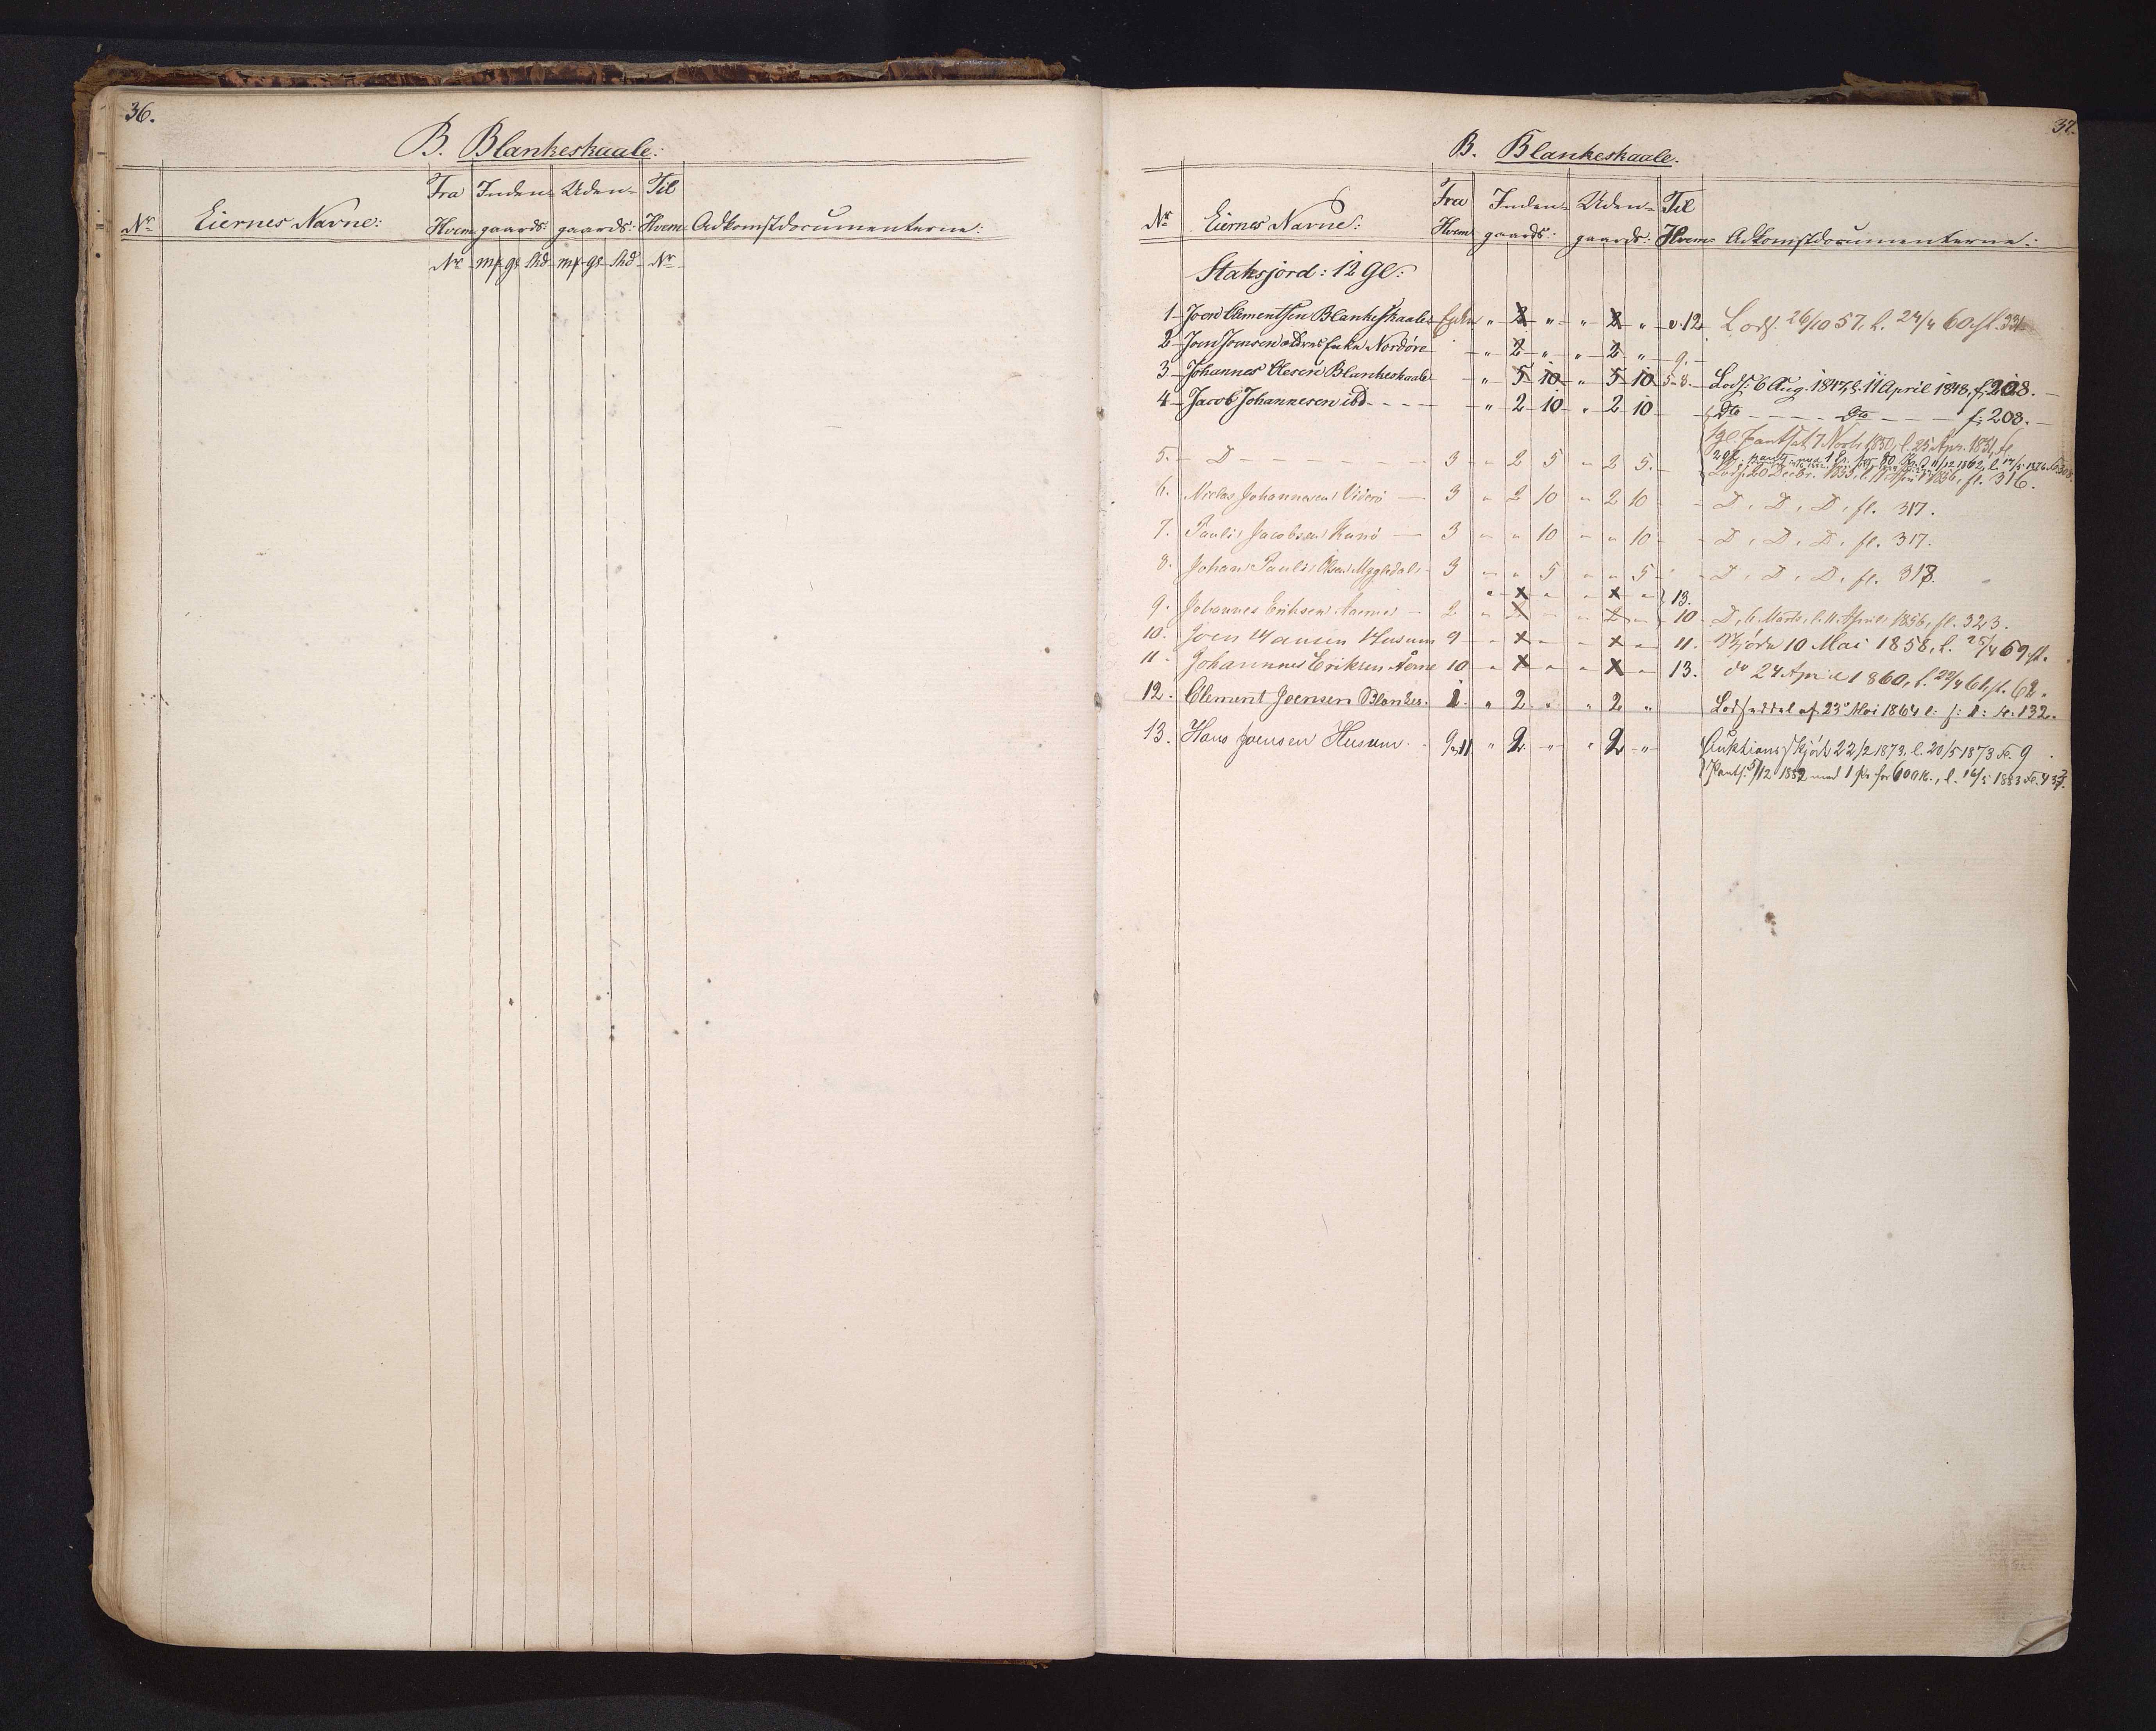 36.
B. Blankeskaale:
Nr Eiernes Navne: Fra Hvem Inden- gaards: Uden- gaards: Til Hvem Adkomstdocumenterne:
Nr mk gl skd mk gl skd Nr
37.
B. Blankeskaale.
Nr Eiernes Navne: Fra Hvem Inden- gaards: Uden- gaards: Til Hvem Adkomstdocumenterne:
Staksjord: 12 Gl:
1 Joen Clementsen Blankeskaales Enke " 2 " " 2 " v. 12 Lods. 26/10 57, l. 24/4 60, fl.
2 Joen Joensen ældres Enke Nordøre " 2 " " 2 " 9.
3 Johannes Olesen Blankeskaale " 5 10 " 5 10 5-8. Lods: 6 Aug. 1847, l: 11 April 1848, f: 208.
4 Jacob Johannesen ibd " 2 10 " 2 10 dto dto f: 208.
1 gl. Pantsat 7 Novbr 1850, l. 25 Apr. 1851, fl.
5. D 3 " 2 5 " 2 5. Lods. 20 Decbr. 1855, l. 11 April 1856, fl. 316.
6. Niclas Johannesen Viderø 3 " 2 10 " 2 10 D, D, D, fl. 317.
7. Pauli Jacobsen Kunø 3 " " 10 " " 10 D, D, D, fl. 317.
8. Johan Pauli Olsen Mygledal 3 " " 5 " " 5 D, D, D, fl. 318.
" " " " 13.
9. Johannes Eriksen Aarne 2 " 2 " " 2 " 10 D, 6 Marts, l. 11 April 1856, fl. 323.
10. Joen Hansen Husum 9 " " " " 11. Skjøde 10 Mai 1858, l. 25/4 69, fl.
11. Johannes Eriksen Aarne 10 " " " " 13. do 24 April 1860, l. 22/4 61, fl. 62.
12. Clement Joensen Blankes. 1. " 2 " " 2 " Lodseddel af 23de Mai 1864 l: f: 1: fo: 132.
13. Hans Joensen Husum 9, 11 " 2 " " 2 " Auktionsskjøde 22/2 1873, l. 20/5 1873 Fo. 9
Pants. 5/12 1882 med 1 Pr for 600 K., l. 16/5 1883 Fo.